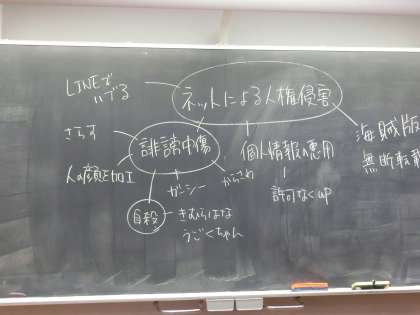 LINEで
いじる
ネットによる人権侵害
さらす
誹謗中傷
個人情報の悪用
海賊版
無断転載
人の顔を加工
ガーシー
からさわ
許可なくup
自殺
きむらはな
うごくちゃん